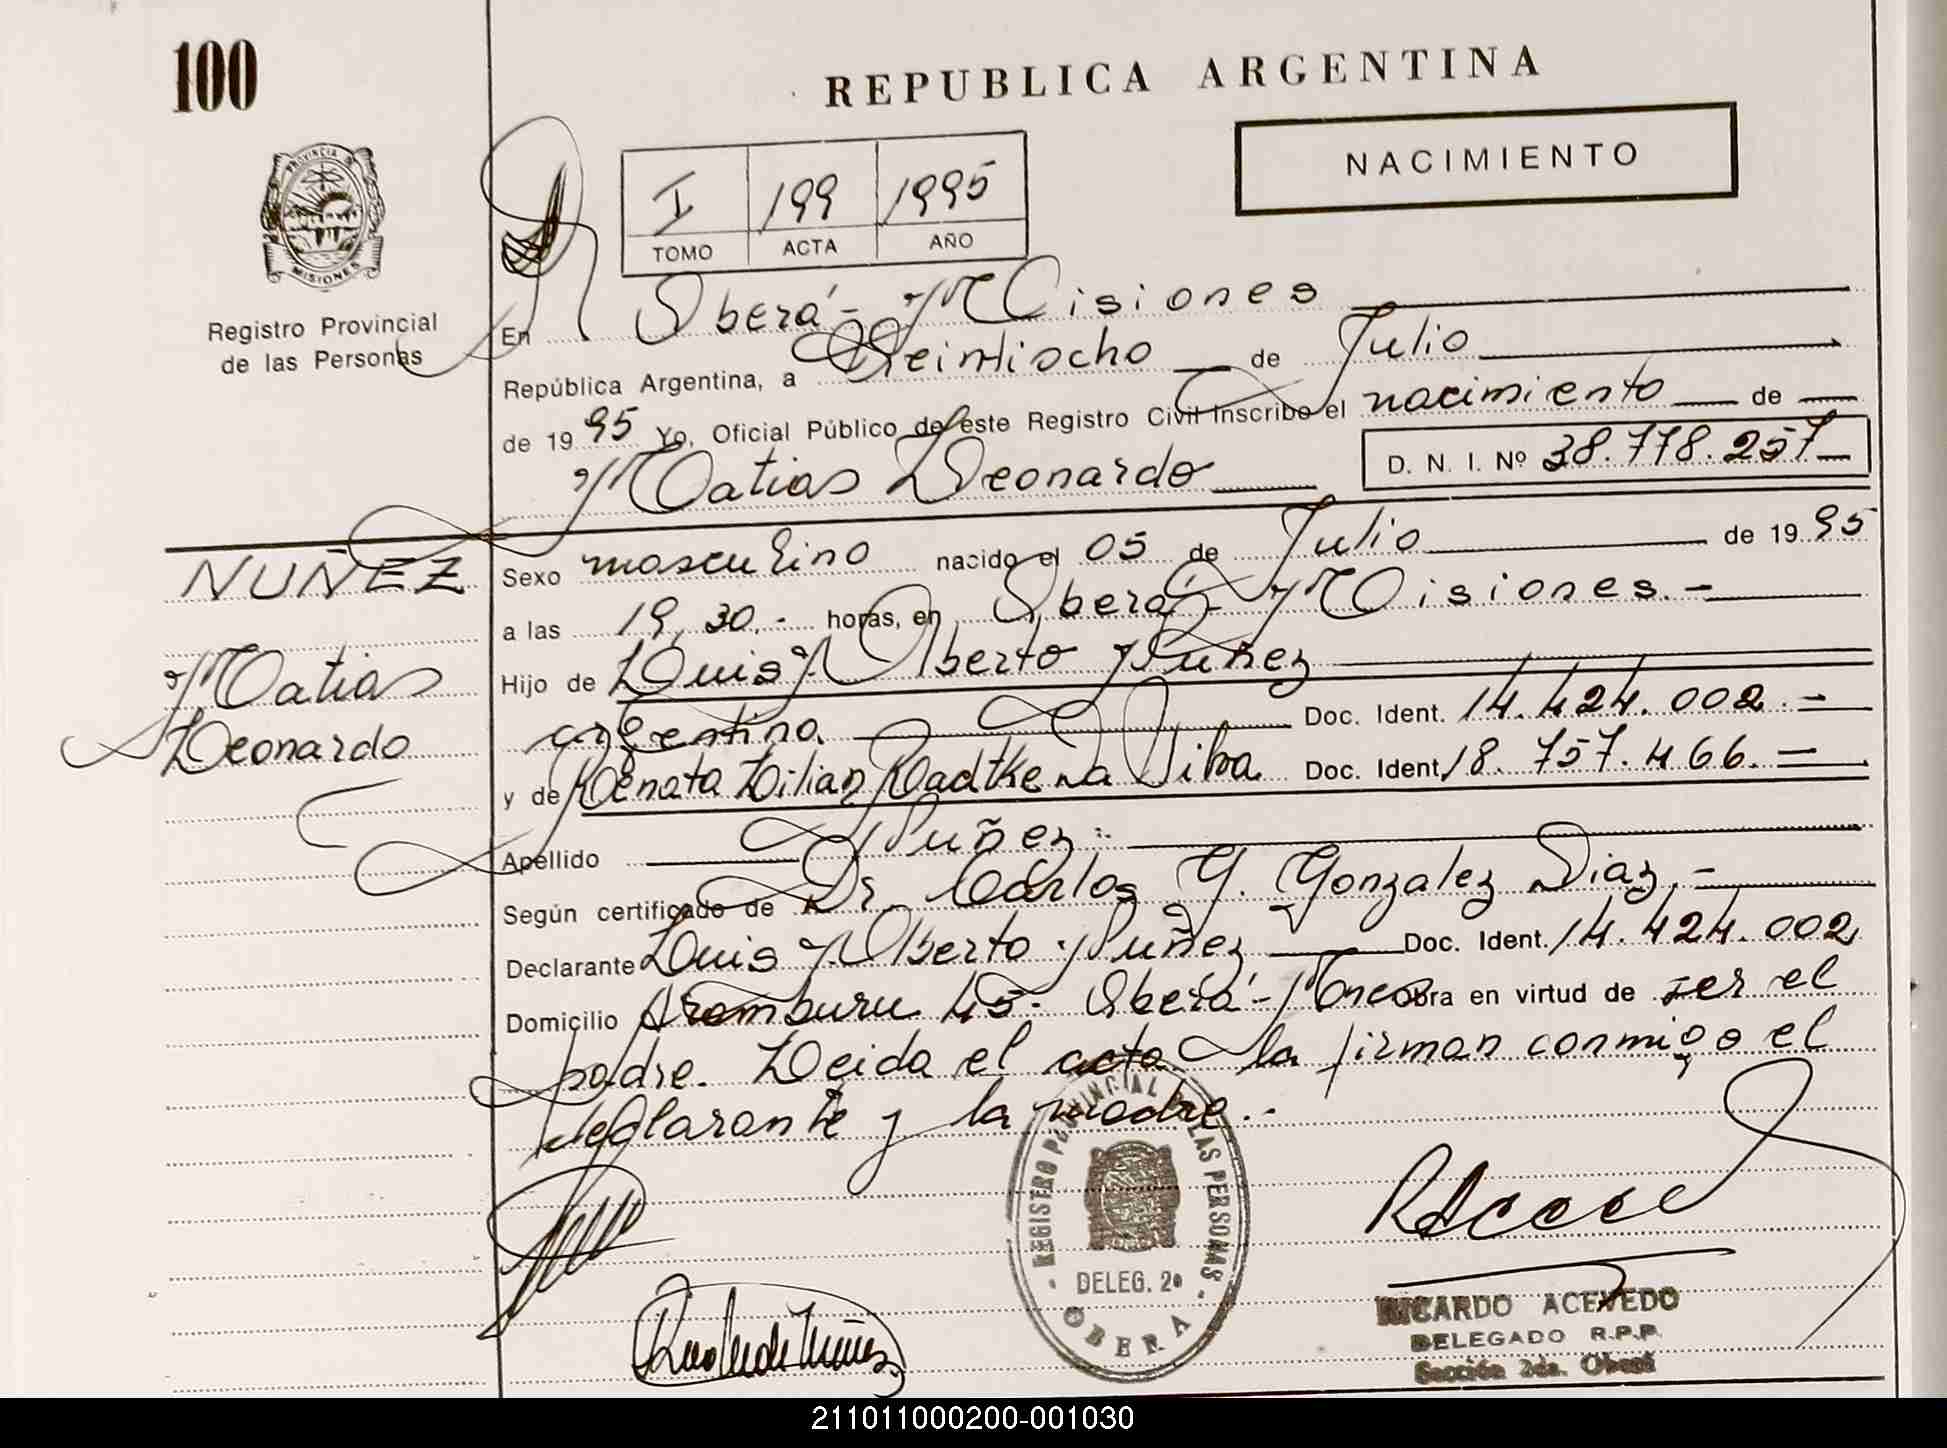 100
REPUBLICA ARGENTINA
NACIMIENTO
PROVINCIA DE MISIONES
Registro Provincial
de las Personas
I 199 1995
TOMO ACTA AÑO
En Oberá - Misiones
República Argentina, a Veintiocho de Julio
de 1995 Yo, Oficial Público de este Registro Civil Inscribo el nacimiento de
Matias Leonardo D. N. I. Nº 38.778.257
NUÑEZ
Matias
Leonardo
Sexo masculino nacido el 05 de Julio de 1995
a las 19,30.- horas, en Oberá - Misiones.-
Hijo de Luis Alberto Nuñez
argentino Doc. Ident. 14.424.002.-
y de Renata Lilian Radtke Da Silva Doc. Ident. 18.757.466.=
Apellido Nuñez.
Según certificado de Dr. Carlos Y. Gonzalez Diaz.-
Declarante Luis Alberto Nuñez Doc. Ident. 14.424.002
Domicilio Aramburu 45- Oberá - Mnes obra en virtud de ser el
padre. Leida el acta la firman conmigo el
declarante y la madre.-
REGISTRO PROVINCIAL DE LAS PERSONAS
DELEG. 2ª
OBERA
RICARDO ACEVEDO
DELEGADO R.P.P.
Sección 2da. Oberá
211011000200-001030